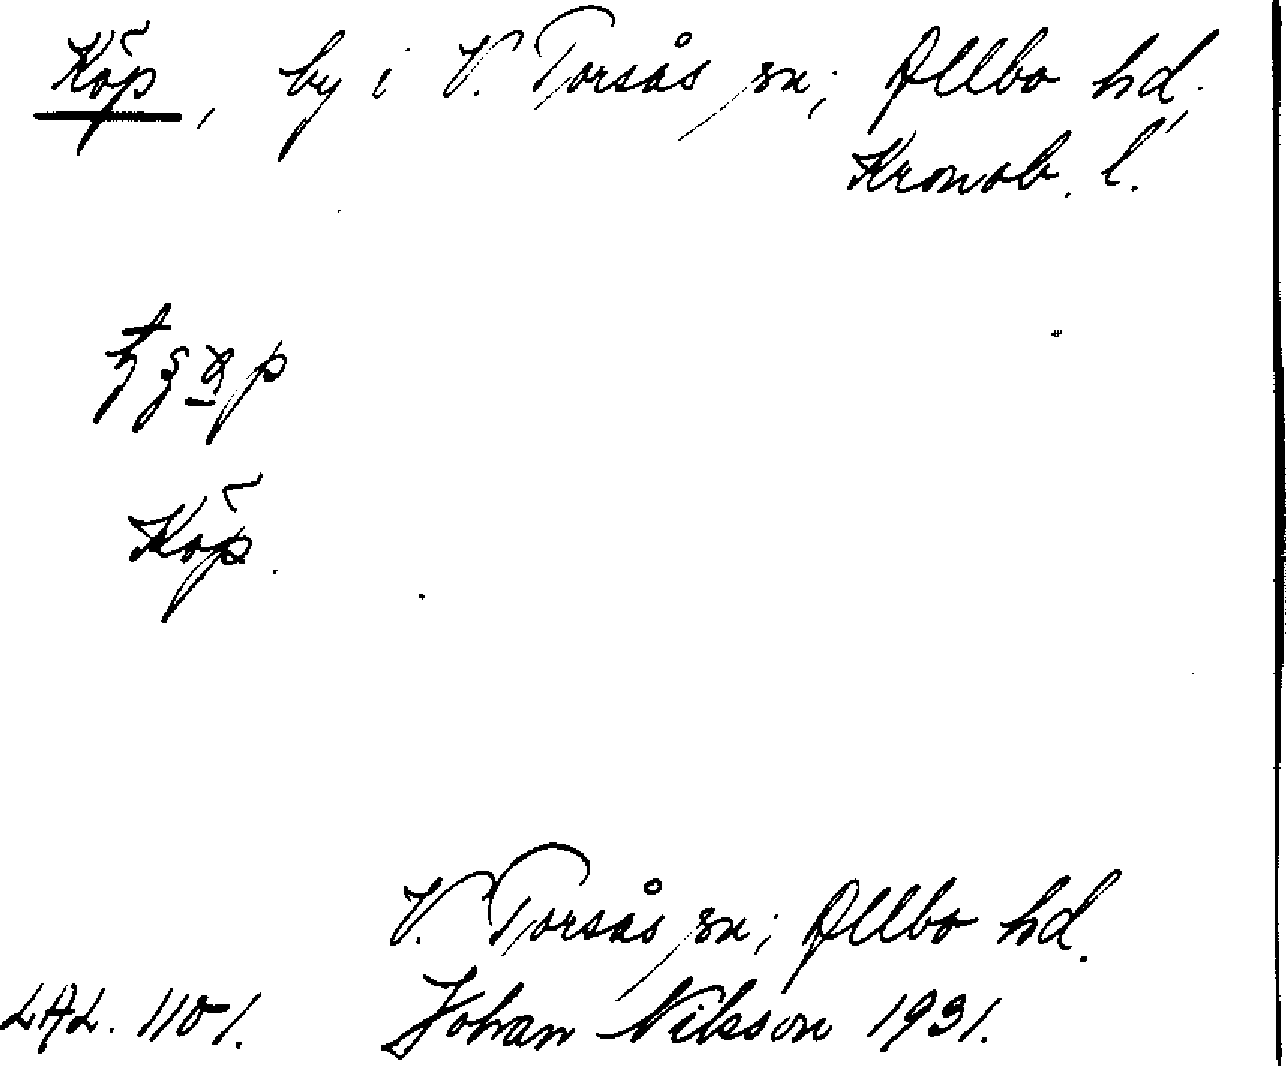 Köp, by i V. Torsås sn; Allbo hd.,
Kronob. l.
Köp.
V. Torsås sn; Allbo hd.
LAL. 1101. Johan Nilsson 1931.